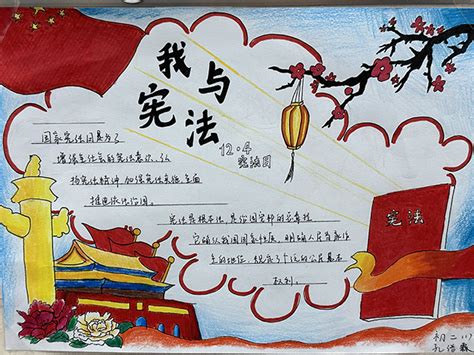 我与
宪法
12.4
宪法日
国家宪法日是为了
增强全社会的宪法意识、弘
扬宪法精神、加强宪法实施、全面
推进依法治国。
宪法是根本法,是治国安邦的总章程
它确认我国国家性质,明确人民当家作
主的地位,规定了广泛的公民基本
权利。
宪法
初二